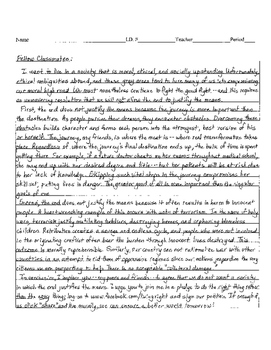 Name I.D. # Teacher Period
Fellow Classmates:
I want to live in a society that is moral, ethical, and socially upstanding. Unfortunately
ethical obligations abound, and these gray areas tend to lure many of us into compromising
our moral high road. We must nonetheless continue to fight the good fight—and this requires
an unwavering resolution that we will not allow the end to justify the means.
First, the end does not justify the means because the journey is more important than
the destination. As people pursue their dreams, they encounter obstacles. Overcoming these
obstacles builds character and forms each person into the strongest, best version of his
or herself. The journey, my friends, is where the meat is—where real transformation takes
place. Regardless of where the journey's final destination ends up, the bulk of time is spent
getting there. For example, if a future doctor cheats on her exams throughout medical school,
she may end up with her desired degree and title—but her patients will be at risk due
to her lack of knowledge. Skipping worthwhile steps in the journey compromises her
skill set, putting lives in danger. The greater good of all is more important than the singular
goals of one.
Indeed, the end does not justify the means because it often results in harm to innocent
people. A heartbreaking example of this occurs with acts of terrorism. In the name of holy
wars, terrorists justify mutilating bodies, destroying homes, and orphaning blameless
children. Retribution creates a vicious and endless cycle, and people who were not involved
in the originating conflict often bear the burden through innocent lives destroyed. This
outcome is morally reprehensible. Similarly, our country can not rationalize war with other
countries in an attempt to rid them of oppressive regimes since our nation's regard for the very
citizens we are purporting to help. There is no acceptable "collateral damage."
In conclusion, I implore you—my peers and friends—to agree that we do not want a society
in which the end justifies the means. I urge you to join me in a pledge to do the right thing rather
than the easy thing. Go on www.facebook.com/ and sign our petition. If enough of
us click "share" and like mainly, we can ensure a better world tomorrow!